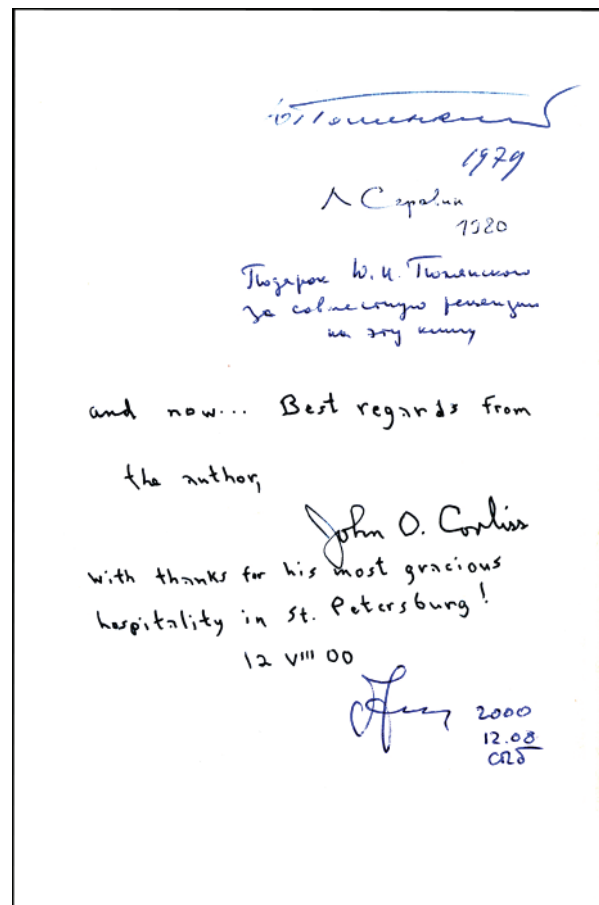 Ю Полянский
1979
Л Серавин
1980
Подарок Ю. И. Полянского
за совместную рецензию
на эту книгу
and now... Best regards from
the author,
John O. Corliss
with thanks for his most gracious
hospitality in St. Petersburg!
12 VIII 00
2000
12.08
СПб